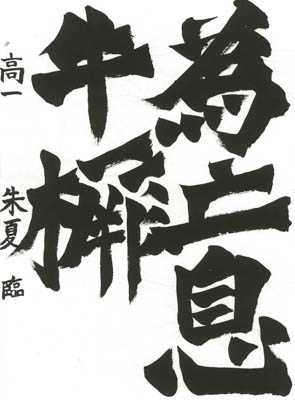 為亡息
牛橛
高一 朱夏 臨